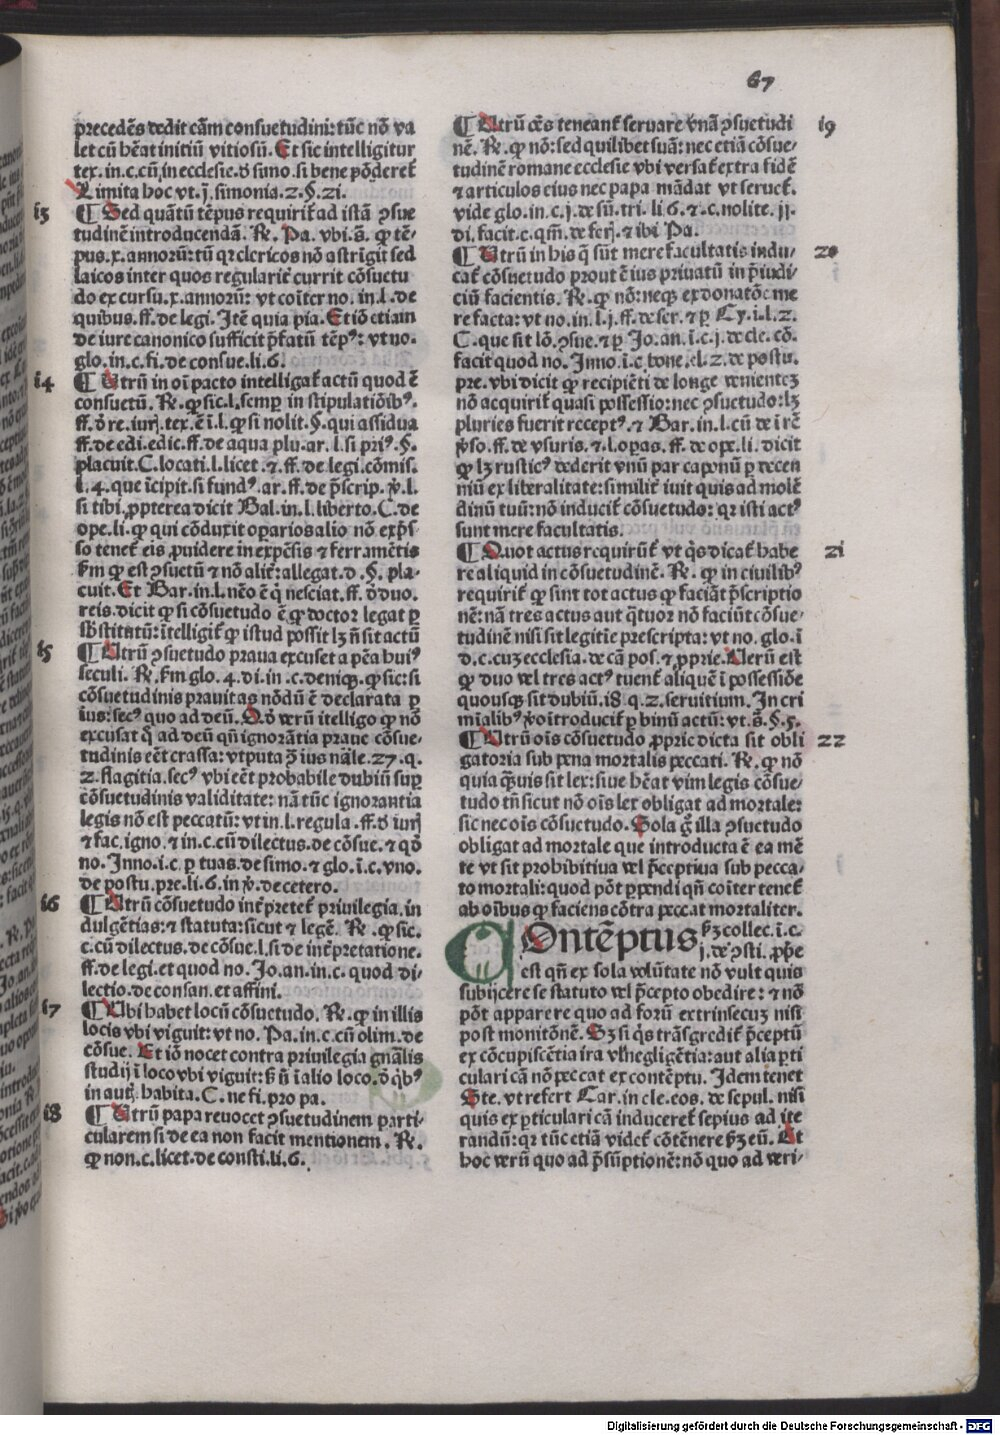 67
precedēs dedit cām consuetudini: tūc nō va
let cū hēat initiū vitiosū. Et sic intelligitur
tex. in. c. cū in ecclesie. d̄ simo. si bene pōderet̄
Limita hoc vt. j̄. simonia. 2. §. 21.
13
¶ Sed quātū tēpus requirit̄ ad istā ꝯsue
tudinē introducendā. R̄. Pa. vbi. s̄. ꝙ tē-
pus. x. annorū: tū qr clericos nō astrīgit sed
laicos inter quos regularit̄ currit cōsuetu
do ex cursu. x. annorū: vt coīter no. in. l. de
quibus. ff. de legi. Itē quia pia. Et iō etiam
de iure canonico sufficit p̄fatū tēpꝰ: vt no.
glo. in. c. fi. de consue. li. 6.
14
¶ Utrū in oī pacto intelligat̄ actū quod ē
consuetū. R̄. ꝙ sic. l. semꝑ in stipulatiōibꝰ.
ff. d̄ re. iurj. tex. ē ī. l. ꝙ si nolit. §. qui assidua
ff. de edi. edic. ff. de aqua plu. ar. l. si priꝰ. §.
placuit. C. locati. l. licet. ⁊. ff. de legi. cōmis.
l. 4. que īcipit. si fundꝰ. ar. ff. de p̄scrip. ꝟ. l.
si tibi. ꝓpterea dicit Bal. in. l. liberto. C. de
ope. li. ꝙ qui cōduxit oparios alio nō exp̄s-
so tenet̄ eis ꝓuidere in expēsis ⁊ ferramētis
ẜm ꝙ est ꝯsuetū ⁊ nō alit̄: allegat. d. §. pla-
cuit. Et Bar. in. l. nēo ē q̄ nesciat. ff. d̄ duo.
reis. dicit ꝙ si cōsuetudo ē ꝙ doctor legat ꝑ
sb̄stitutū: ītelligit̄ ꝙ istud possit lꝫ n̄ sit actū
15
¶ Utrū ꝯsuetudo praua excuset a pēa huiꝰ
seculi. R̄. ẜm glo. 4. di. in. c. deniqꝫ. ꝙ sic: si
cōsuetudinis prauitas nōdū ē declarata ꝑ
ius: secꝰ quo ad deū. Qd̄ verū ītelligo ꝙ nō
excusat q̄ ad deū qn̄ ignorātia praue cōsue-
tudinis eēt crassa: vtputa ꝯ̄ ius nāle. 27. q.
2. flagitia. secꝰ vbi eēt probabile dubiū suꝑ
cōsuetudinis validitate: nā tūc ignorantia
legis nō est peccatū: vt in. l. regula. ff. d̄ iurj
⁊ fac. igno. ⁊ in. c. cū dilectus. de cōsue. ⁊ qd̄
no. Inno. i. c. ꝑ tuas. de simo. ⁊ glo. ī. c. vno.
de postu. pre. li. 6. in ꝟ. de cetero.
16
¶ Utrū cōsuetudo int̄pretet̄ priuilegia. in
dulgētias: ⁊ statuta: sicut ⁊ legē. R̄. ꝙ sic.
c. cū dilectus. de cōsue. l. si de int̄pretatione.
ff. de legi. et quod no. Jo. an. in. c. quod di-
lectio. de consan. et affini.
17
¶ Ubi habet locū cōsuetudo. R̄. ꝙ in illis
locis vbi viguit: vt no. Pa. in. c. cū olim. de
cōsue. Et iō nocet contra priuilegia gn̄alis
studij ī loco vbi viguit: ẜ n̄ ī alio loco. d̄ qbꝰ
in aut̄. habita. C. ne fi. pro pa.
18
¶ Utrū papa reuocet ꝯsuetudinem parti-
cularem si de ea non facit mentionem. R̄.
ꝙ non. c. licet. de consti. li. 6.
19
¶ Utrū oēs teneant̄ seruare vnā ꝯsuetudi
nē. R̄. ꝙ nō: sed quilibet suā: nec etiā cōsue-
tudinē romane ecclesie vbi versat̄ extra fidē
⁊ articulos eius nec papa mādat vt seruet̄.
vide glo. in. c. j. de sū. tri. li. 6. ⁊. c. nolite. 11.
di. facit. c. qm̄. de ferj. ⁊ ibi Pa.
20
¶ Utrū in his q̄ sūt mere facultatis indu-
cat̄ cōsuetudo prout ē ius priuatū in p̄iudi-
ciū facientis. R̄. ꝙ nō: neqꝫ ex donatōe me
re facta: vt no. in. l. j. ff. de ser. ⁊ ꝑ Cy. i. l. 2.
C. que sit lō. ꝯsue. ⁊ ꝑ Jo. an. ī. c. j. de cle. cō.
facit quod no. Inno. ī. c. bone. el. 2. de postu.
pre. vbi dicit ꝙ recipiēti de longe venienteꝫ
nō acquirit̄ quasi possessio: nec ꝯsuetudo: lꝫ
pluries fuerit receptꝰ. ⁊ Bar. in. l. cū de ī rē
ꝟso. ff. de vsuris. ⁊. l. opas. ff. de ope. li. dicit
ꝙ lꝫ rusticꝰ dederit vnū par caponū ꝑ decen
niū ex liberalitate: similit̄ iuit quis ad molē
dinū tuū: nō inducit̄ cōsuetudo: qr isti actꝰ
sunt mere facultatis.
21
¶ Quot actus requirūt̄ vt q̄s dicat̄ habe
re aliquid in cōsuetudinē. R̄. ꝙ in ciuilibꝰ
requirit̄ ꝙ sint tot actus ꝙ faciāt p̄scriptio
nē: nā tres actus aut q̄tuor nō faciūt cōsue-
tudinē nisi sit legitīe prescripta: vt no. glo. ī
d. c. cuꝫ ecclesia. de cā pos. ⁊ ꝓprie. Uerū est
ꝙ duo vel tres actꝰ tuent̄ aliquē ī possessiōe
quousqꝫ sit dubiū. 18. q. 2. seruitium. In cri
mīalibꝰ ꝟo ītroducit̄ ꝑ binū actū: vt. s̄. §. 5.
22
¶ Utrū oīs cōsuetudo ꝓprie dicta sit obli
gatoria sub pena mortalis peccati. R̄. ꝙ nō
quia q̄uis sit lex: siue hēat vim legis cōsue-
tudo tn̄ sicut nō oīs lex obligat ad mortale:
sic nec oīs cōsuetudo. Sola g̊ illa ꝯsuetudo
obligat ad mortale que introducta ē ea mē
te vt sit prohibitiua vel p̄ceptiua sub pecca-
to mortali: quod pōt ꝑpendi qn̄ coīter tenet̄
ab oībus ꝙ faciens cōtra peccat mortaliter.
COntēptus ẜꝫ collec. ī. c.
j. de ꝯsti. ꝓp̄e
est qn̄ ex sola volūtate nō vult quis
subijcere se statuto vel p̄cepto obedire: ⁊ nō
pōt apparere quo ad forū extrinsecuꝫ nisi
post monitōnē. Sꝫ si q̄s trāsgredit̄ p̄ceptū
ex cōcupiscētia ira vl̄ negligētia: aut alia ꝑti
culari cā nō peccat ex contēptu. Idem tenet
Ste. vt refert Car. in cle. eos. de sepul. nisi
quis ex ꝑticulari cā induceret̄ sepius ad ite
randū: qr tūc etiā videt̄ cōtēnere ẜꝫ eū. Et
hoc verū quo ad p̄sūptionē: nō quo ad veri-
Digitalisierung gefördert durch die Deutsche Forschungsgemeinschaft - DFG